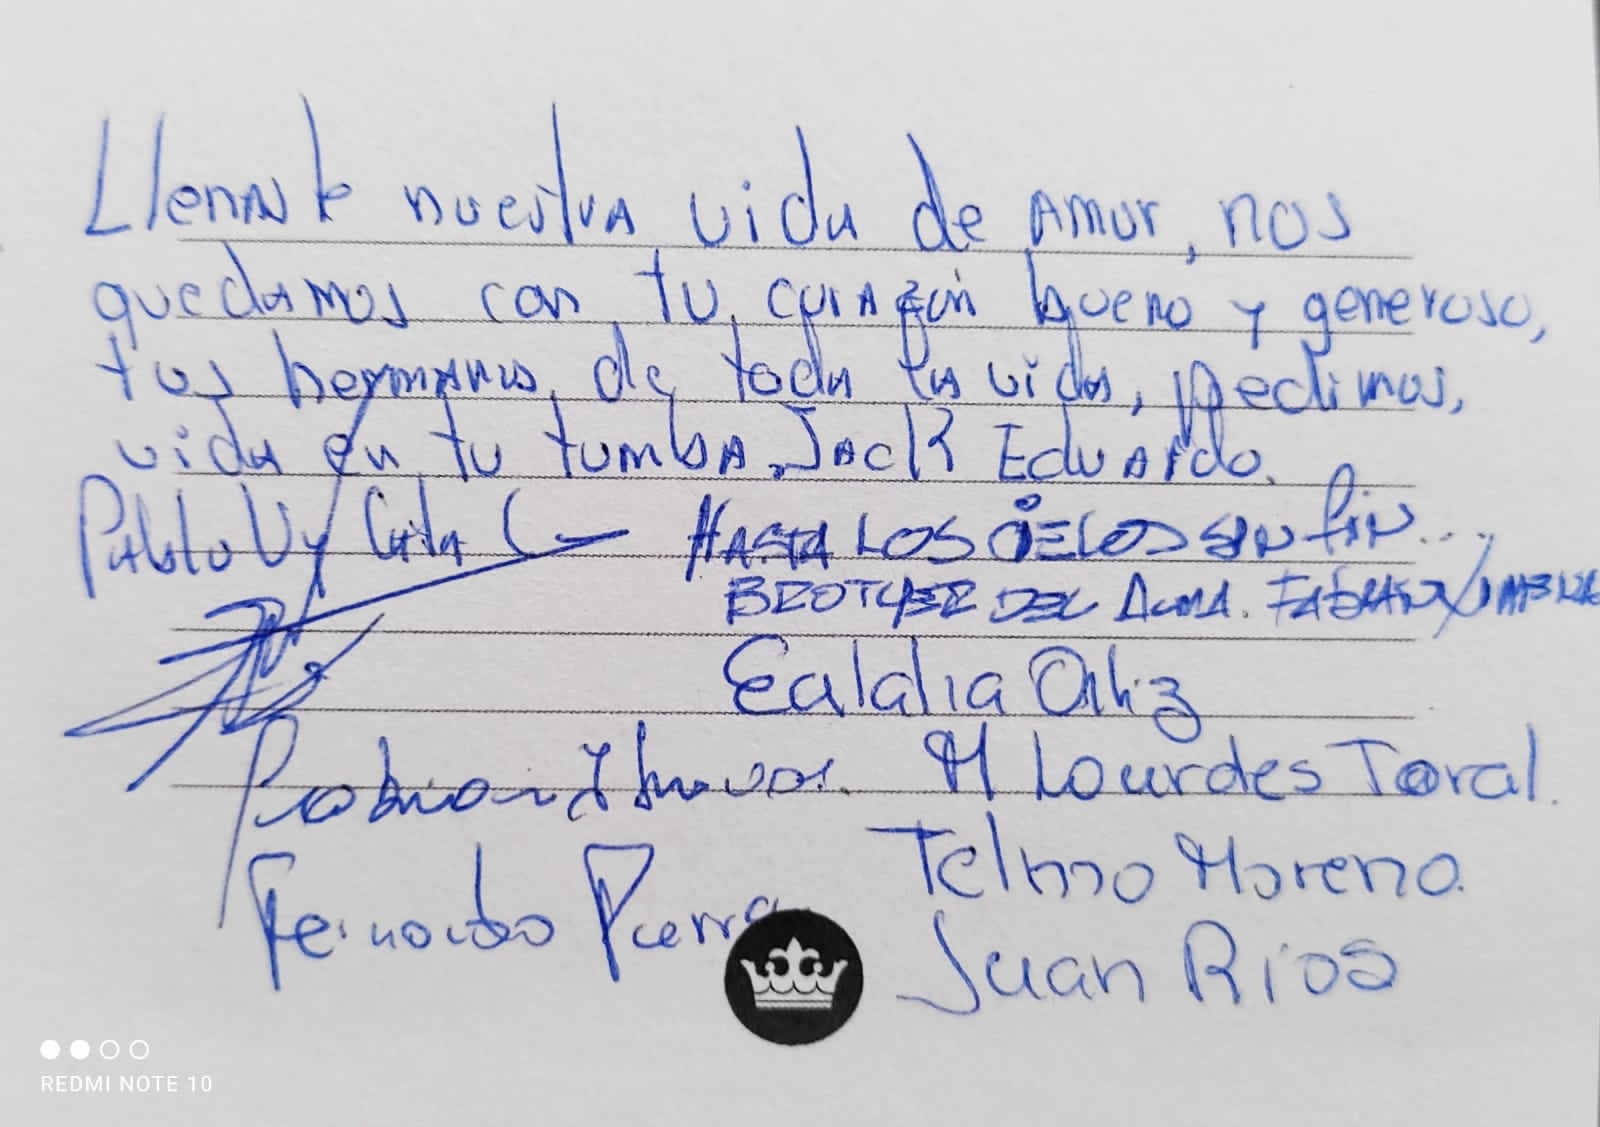 Llenaste nuestra vida de amor, nos
quedamos con tu corazón bueno y generoso,
tus hermanos de toda la vida, pedimos,
vida en tu tumba, Jack Eduardo.
Pablo V y
HASTA LOS CIELOS SIN FIN...
BROTHER DEL ALMA. FABIAN/XIMENA
Ealalia Ortiz
M Lourdes Toral.
Fernando Pierra
Telmo Moreno.
Juan Rios
REDMI NOTE 10